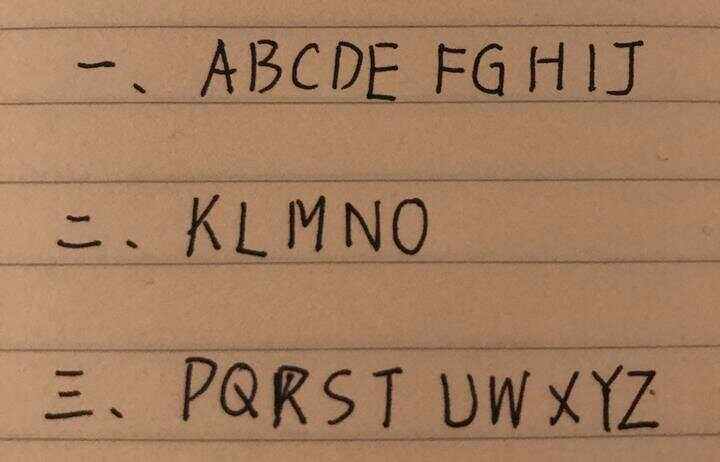 一、ABCDE FGHIJ
二、KLMNO
三、PQRST UWXYZ